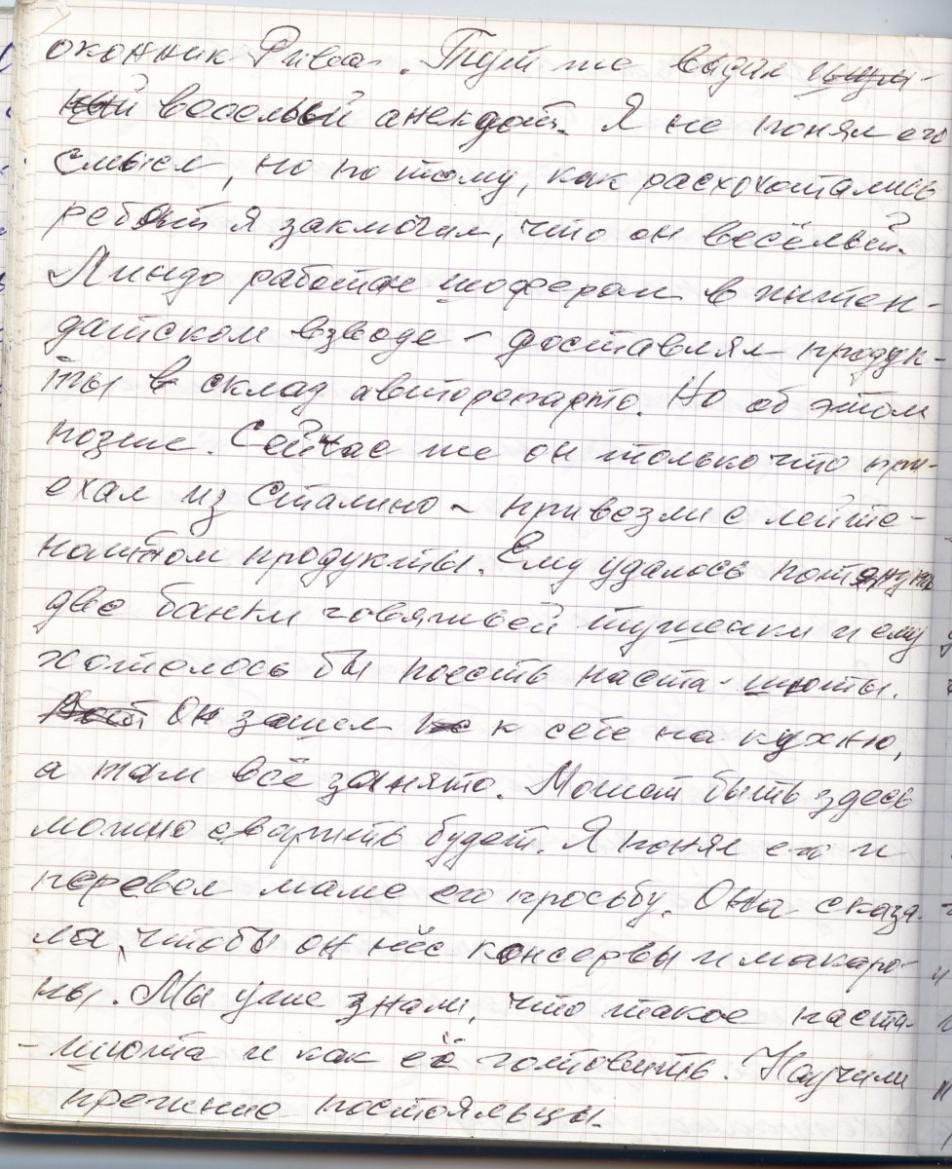 оконник Рива. Тут же выдал
весёлый анекдот. Я не понял его
смысл, но по тому, как расхохотались
ребята я заключил, что он весёлый.
Линдо работал шофером в интен-
датском взводе – доставлял продук-
ты в склад авторепарто. Но об этом
позже. Сейчас же он только что при-
ехал из Сталино – привезли с лейте-
нантом продукты. Ему удалось потянуть
две банки говяжьей тушенки и ему
хотелось бы поесть паста-шюты.
Он зашел к себе на кухню,
а там всё занято. Может быть здесь
можно сварить будет. Я понял его и
перевел маме его просьбу. Она сказа-
ла, чтобы он нёс консервы и макаро-
ны. Мы уже знали, что такое паста-
-шюта и как её готовить. Научили
прежние постояльцы.